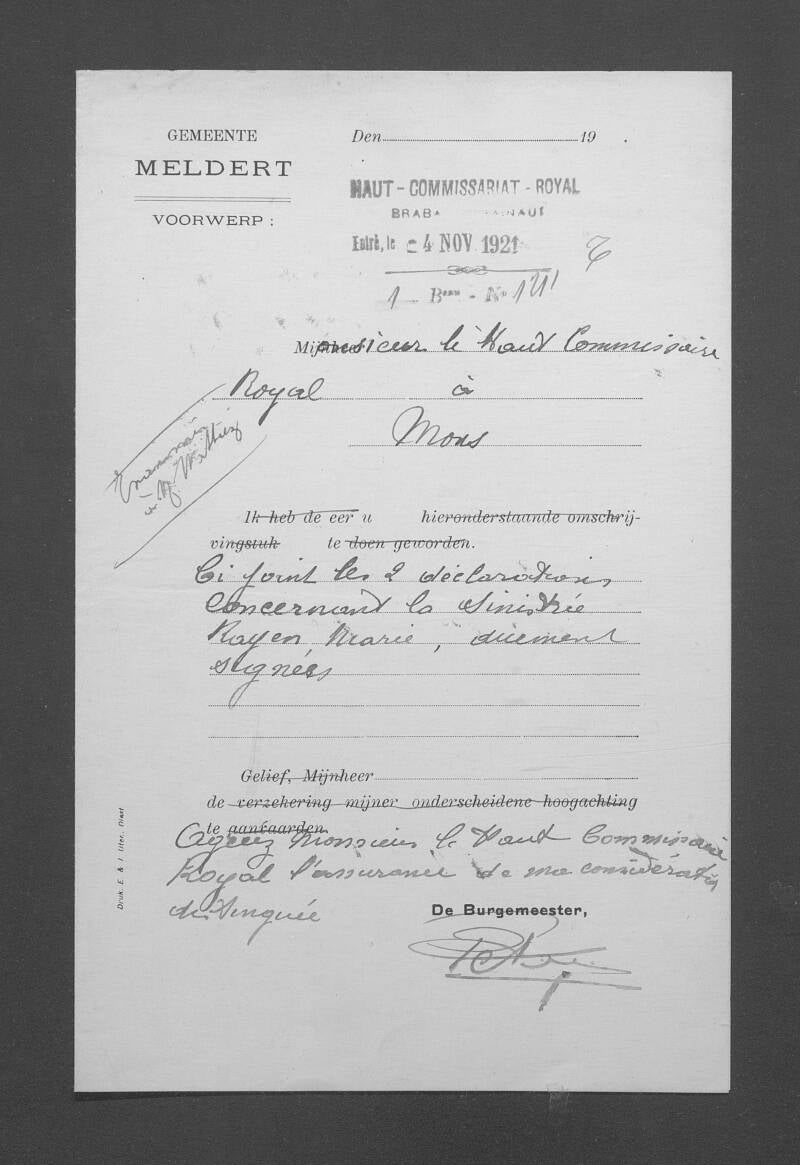 GEMEENTE
MELDERT
VOORWERP :
Den 19 .
HAUT - COMMISSARIAT - ROYAL
Entré, le - 4 NOV 1921
1 - Beau - No 1
Mijnheer Monsieur le Haut Commissaire
Royal à
Mons
Ik heb de eer u hieronderstaande omschrij-
vingstuk te doen geworden.
Ci joint les 2 déclarations
concernant la sinistrée
Rayen, Marie, duement
signées
Gelief, Mijnheer
de verzekering mijner onderscheidene hoogachting
te aanvaarden.
Agréez Monsieur le Haut Commissaire
Royal l'assurance de ma considération
distinguée
De Burgemeester,